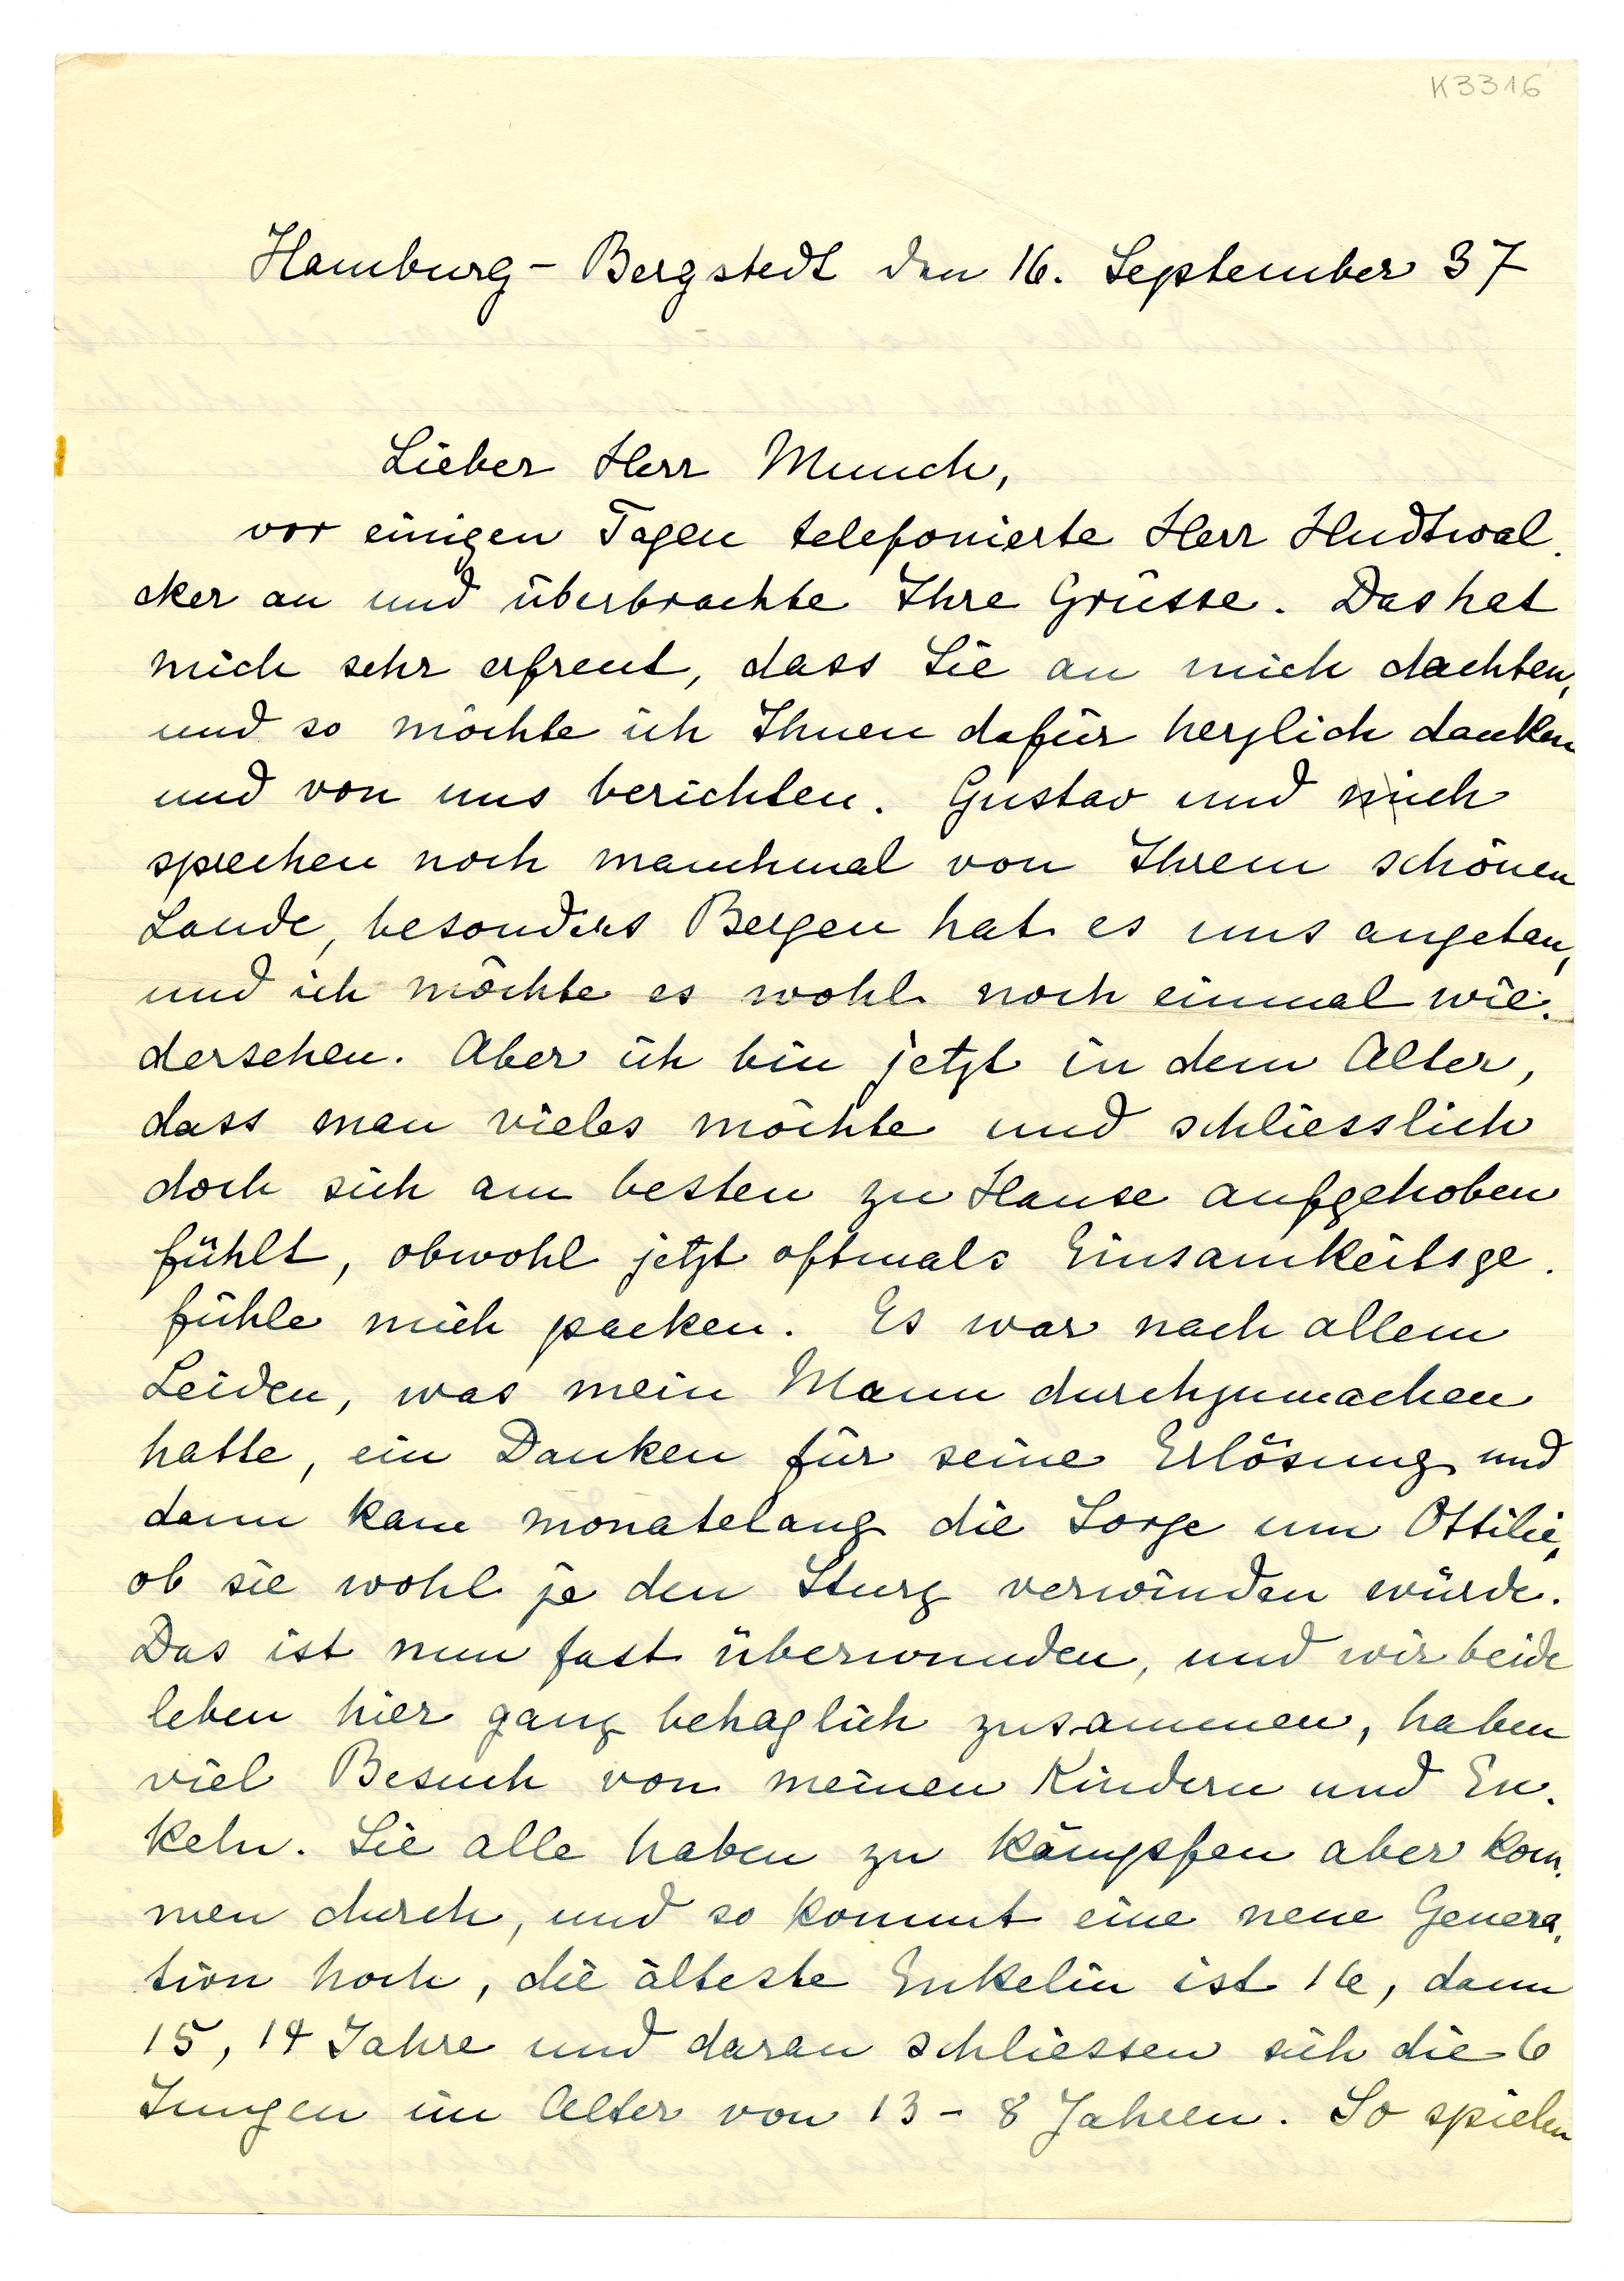 K3316
Hamburg - Bergstedt den 16. September 37
Lieber Herr Munch,
vor einigen Tagen telefonierte Herr Hudtwal-
cker an und überbrachte Ihre Grüsse. Das hat
mich sehr erfreut, dass Sie an mich dachten,
und so möchte ich Ihnen dafür herzlich danken
und von uns berichten. Gustav und ich
sprechen noch manchmal von Ihrem schönen
Lande, besonders Bergen hat es uns angetan,
und ich möchte es wohl noch einmal wie-
dersehen. Aber ich bin jetzt in dem Alter,
dass man vieles möchte und schliesslich
doch sich am besten zu Hause aufgehoben
fühlt, obwohl jetzt oftmals Einsamkeitsge-
fühle mich packen. Es war nach allem
Leiden, was mein Mann durchzumachen
hatte, ein Danken für seine Erlösung und
dann kam monatelang die Sorge um Ottilie,
ob sie wohl je den Sturz verwinden würde.
Das ist nun fast überwunden, und wir beide
leben hier ganz behaglich zusammen, haben
viel Besuch von meinen Kindern und En-
keln. Sie alle haben zu kämpfen aber kom-
men durch, und so kommt eine neue Genera-
tion hoch, die älteste Enkelin ist 16, dann
15, 14 Jahre und daran schliessen sich die 6
Jungen im Alter von 13 - 8 Jahren. So spielen